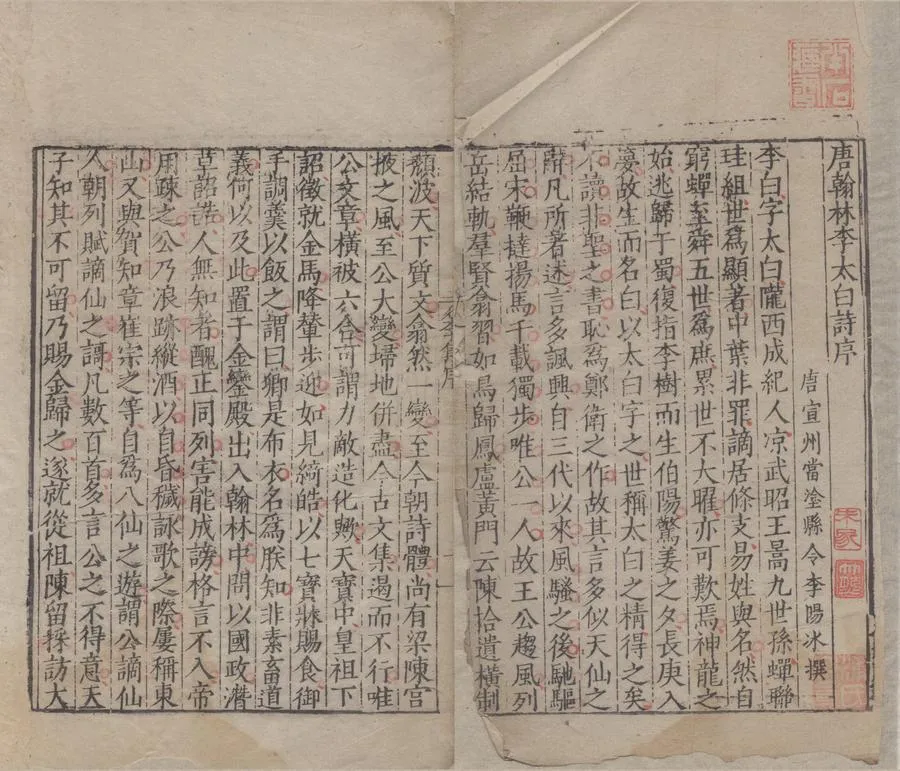 唐翰林李太白詩序
唐宣州當塗縣令李陽冰撰
李白字太白隴西成紀人凉武昭王暠九世孫蟬聯
珪組世爲顯著中葉非罪謫居條支易姓與名然自
窮蟬至舜五世爲庶累世不大曜亦可歎焉神龍之
始逃歸于蜀復指李樹而生伯陽驚姜之夕長庚入
夢故生而名白以太白字之世稱太白之精得之矣
不讀非聖之書恥爲鄭衛之作故其言多似天仙之
辭凡所著述言多諷興自三代以來風騷之後馳驅
屈宋鞭撻揚馬千載獨步唯公一人故王公趨風列
岳結軌羣賢翕習如鳥歸鳳盧黃門云陳拾遺橫制
頹波天下質文翕然一變至今朝詩體尚有梁陳宮
掖之風至公大變埽地併盡今古文集遏而不行唯
公文章橫被六合可謂力敵造化歟天寶中皇祖下
詔徵就金馬降輦步迎如見綺皓以七寶牀賜食御
手調羹以飯之謂曰卿是布衣名爲朕知非素畜道
義何以及此置于金鑾殿出入翰林中問以國政潛
草詔誥人無知者醜正同列害能成謗格言不入帝
用疎之公乃浪跡縱酒以自昏穢詠歌之際屢稱東
山又與賀知章崔宗之等自爲八仙之遊謂公謫仙
人朝列賦謫仙之謌凡數百首多言公之不得意天
子知其不可留乃賜金歸之遂就從祖陳留採訪大